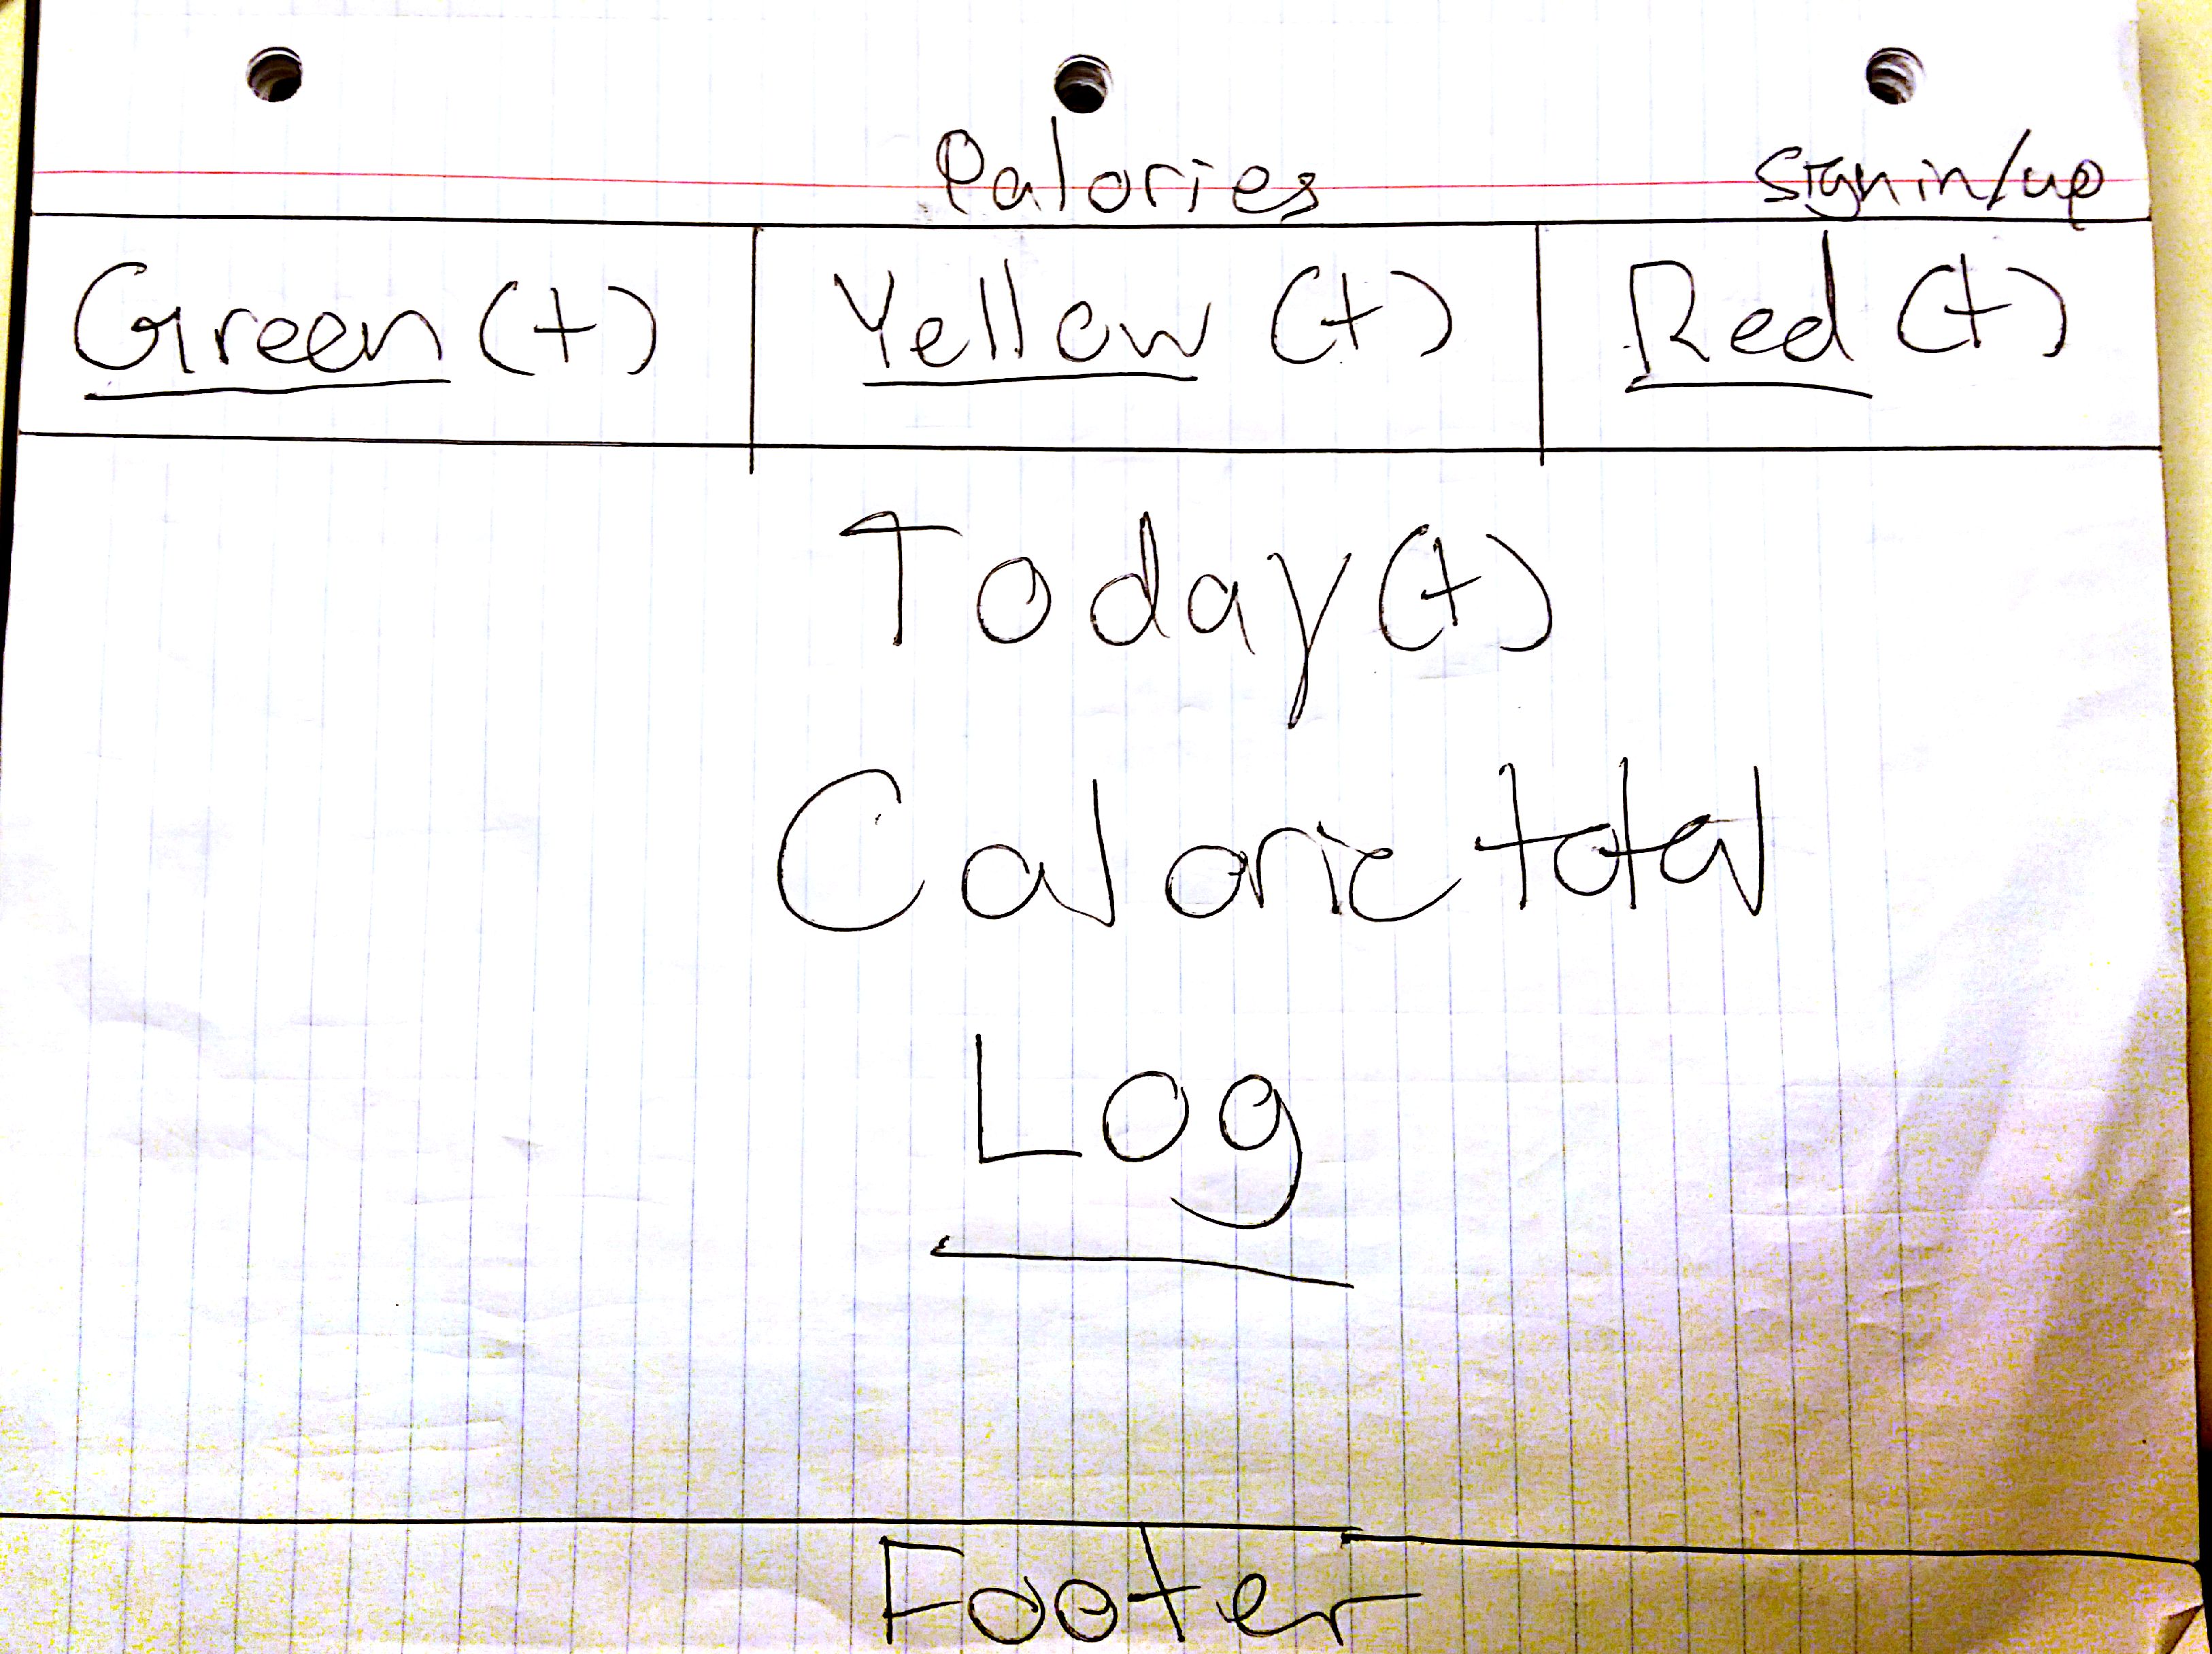 Palories sign in/up
Green (+) Yellow (+) Red (+)
Today (+)
Caloric total
Log
Footer